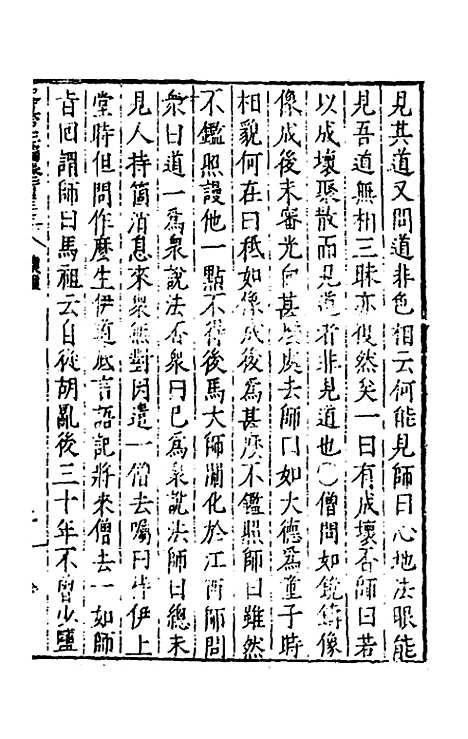 見其道又問道非色相云何能見師曰心地法眼能
見吾道無相三昧亦復然矣一曰有成壞否師曰若
以成壞聚散而見道者非見道也〇僧問如鏡鑄像
像成後未審光向甚麼處去師曰如大德爲童子時
相貌何在曰秪如像成後爲甚麽不鑑照師曰雖然
不鑑照謾他一點不得後馬大師闡化於江西師問
衆曰道一爲衆說法否衆曰已爲衆說法師曰總未
見人持箇消息來衆無對因遣一僧去囑曰待伊上
堂時但問作麼生伊道底言語記將來僧去一如師
旨回謂師曰馬祖云自從胡亂後三十年不曾少鹽